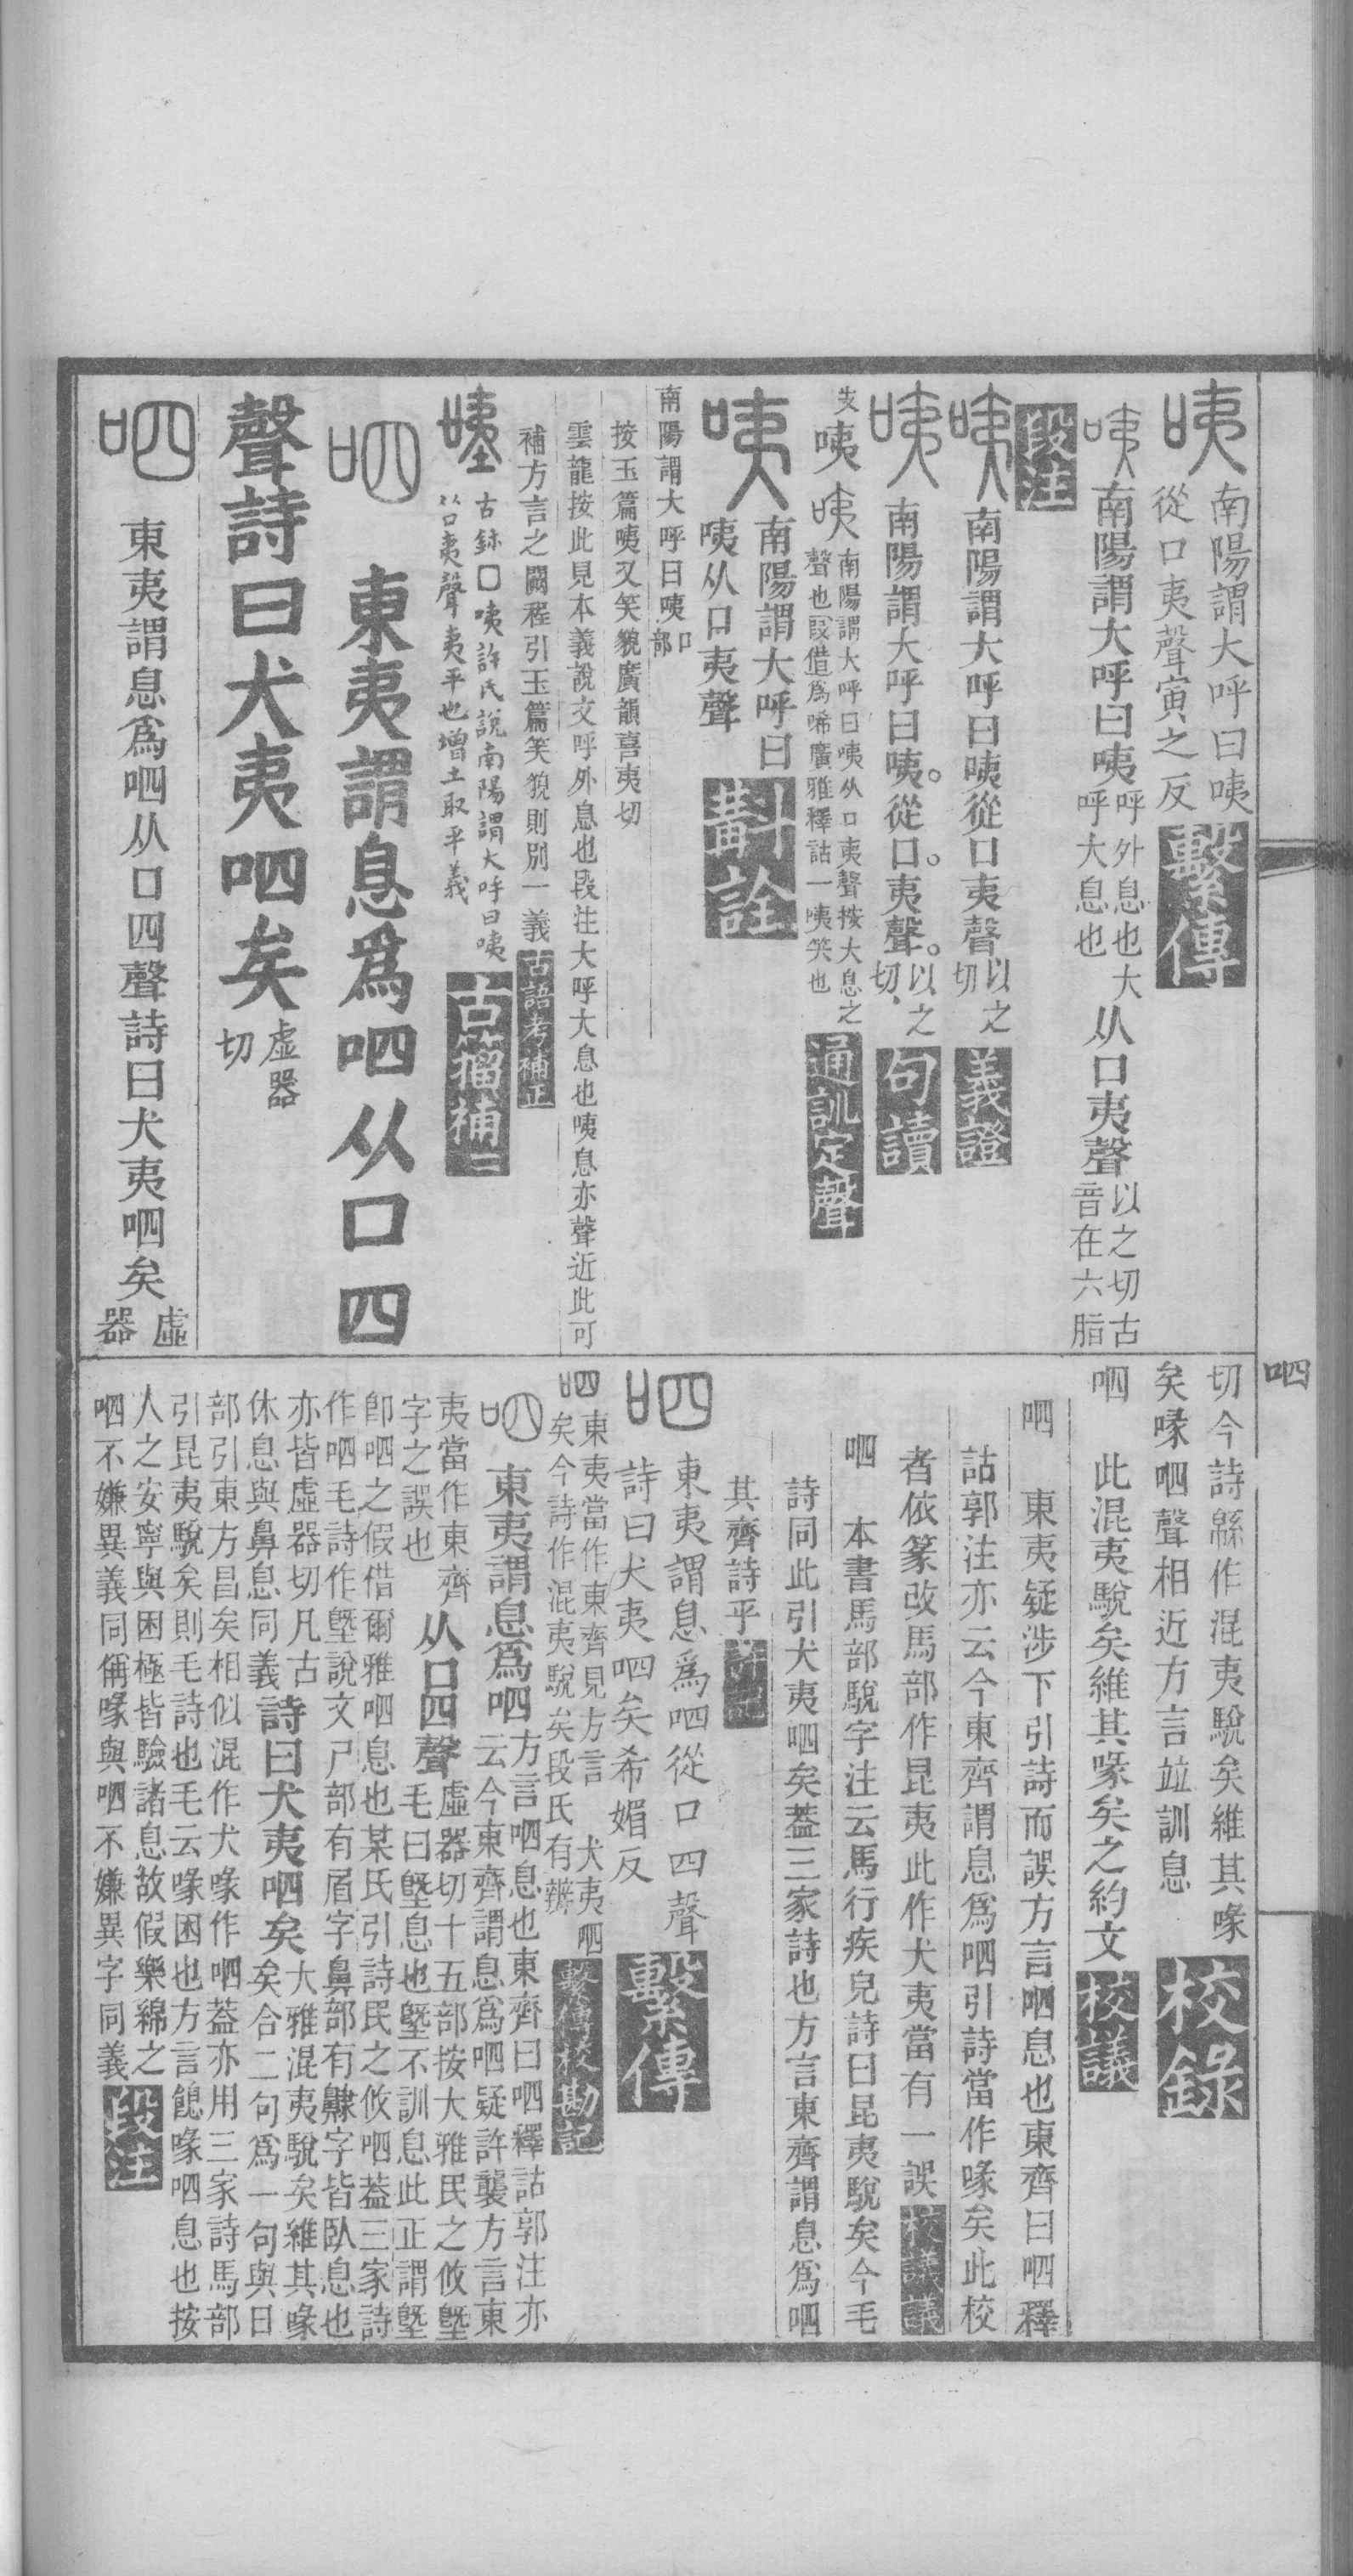 咦
南陽謂大呼曰咦
從口夷聲寅之反
繫傳
咦 南陽謂大呼曰咦呼外息也大
呼大息也从口夷聲以之切古
音在六脂
段注
咦 南陽謂大呼曰咦從口夷聲以之
切
義證
咦 南陽謂大呼曰咦。從口。夷聲。以之
切、
句讀
咦 咦 南陽謂大呼曰咦从口夷聲按大息之
聲也叚借爲唏廣雅釋詁一咦笑也
通訓定聲
咦 南陽謂大呼曰
咦从口夷聲
斠詮
南陽謂大呼曰咦口
部
按玉篇咦又笑貌廣韻喜夷切
雲龍按此見本義說文呼外息也段注大呼大息也咦息亦聲近此可
補方言之闕程引玉篇笑貌則別一義
古語考補正
古鉨口咦許氏說南陽謂大呼曰咦
从口夷聲夷平也增土取平義
古籀補二
呬 東夷謂息爲呬从口四
聲詩曰犬夷呬矣虛器
切
呬 東夷謂息爲呬从口四聲詩曰犬夷呬矣虛
器
呬
切今詩緜作混夷駾矣維其喙
矣喙呬聲相近方言竝訓息
校錄
呬 此混夷駾矣維其喙矣之約文
校議
呬 東夷疑涉下引詩而誤方言呬息也東齊曰呬釋
詁郭注亦云今東齊謂息爲呬引詩當作喙矣此校
者依篆改馬部作昆夷此作犬夷當有一誤
校議議
呬 本書馬部駾字注云馬行疾皃詩曰昆夷駾矣今毛
詩同此引犬夷呬矣蓋三家詩也方言東齊謂息爲呬
其齊詩乎
呬 東夷謂息爲呬從口四聲
詩曰犬夷呬矣希媚反
繫傳
呬 東夷當作東齊見方言 犬夷呬
矣今詩作混夷駾矣段氏有辨
繫傳校勘記
呬 東夷謂息爲呬方言呬息也東齊曰呬釋詁郭注亦
云今東齊謂息爲呬疑許襲方言東
夷當作東齊
字之誤也从口四聲虛器切十五部按大雅民之攸塈
毛曰塈息也塈不訓息此正謂塈
卽呬之假借爾雅呬息也某氏引詩民之攸呬蓋三家詩
作呬毛詩作塈說文尸部有眉字鼻部有齂字皆臥息也
亦皆虛器切凡古
休息與鼻息同義詩曰犬夷呬矣大雅混夷駾矣維其喙
矣合二句爲一句與日
部引東方昌矣相似混作犬喙作呬蓋亦用三家詩馬部
引昆夷駾矣則毛詩也毛云喙困也方言飽喙呬息也按
人之安寧與困極皆驗諸息故假樂綿之
呬不嫌異義同偁喙與呬不嫌異字同義
段注